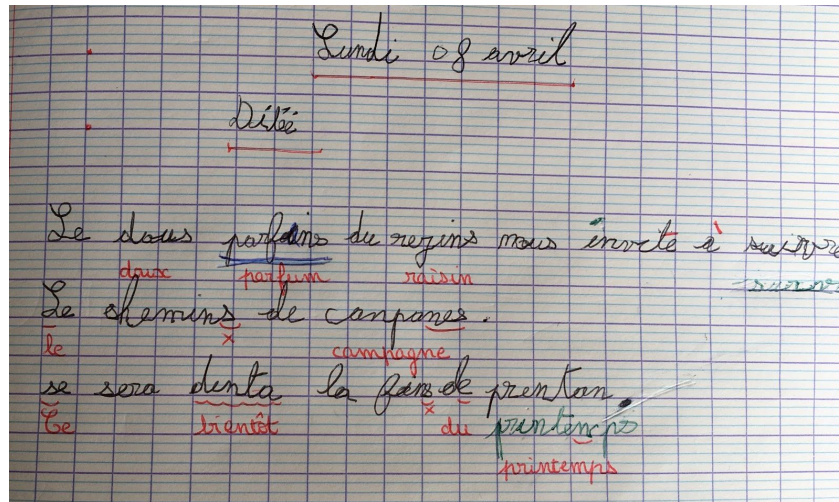 Lundi 08 avril
Ditéé
Le dous parfains du rezins nous invite à suivre
doux parfum raisin
Le chemins de canpanes.
le x campagne
se sera dinta la fains de prentan.
Ce bientôt x du printenps
printemps